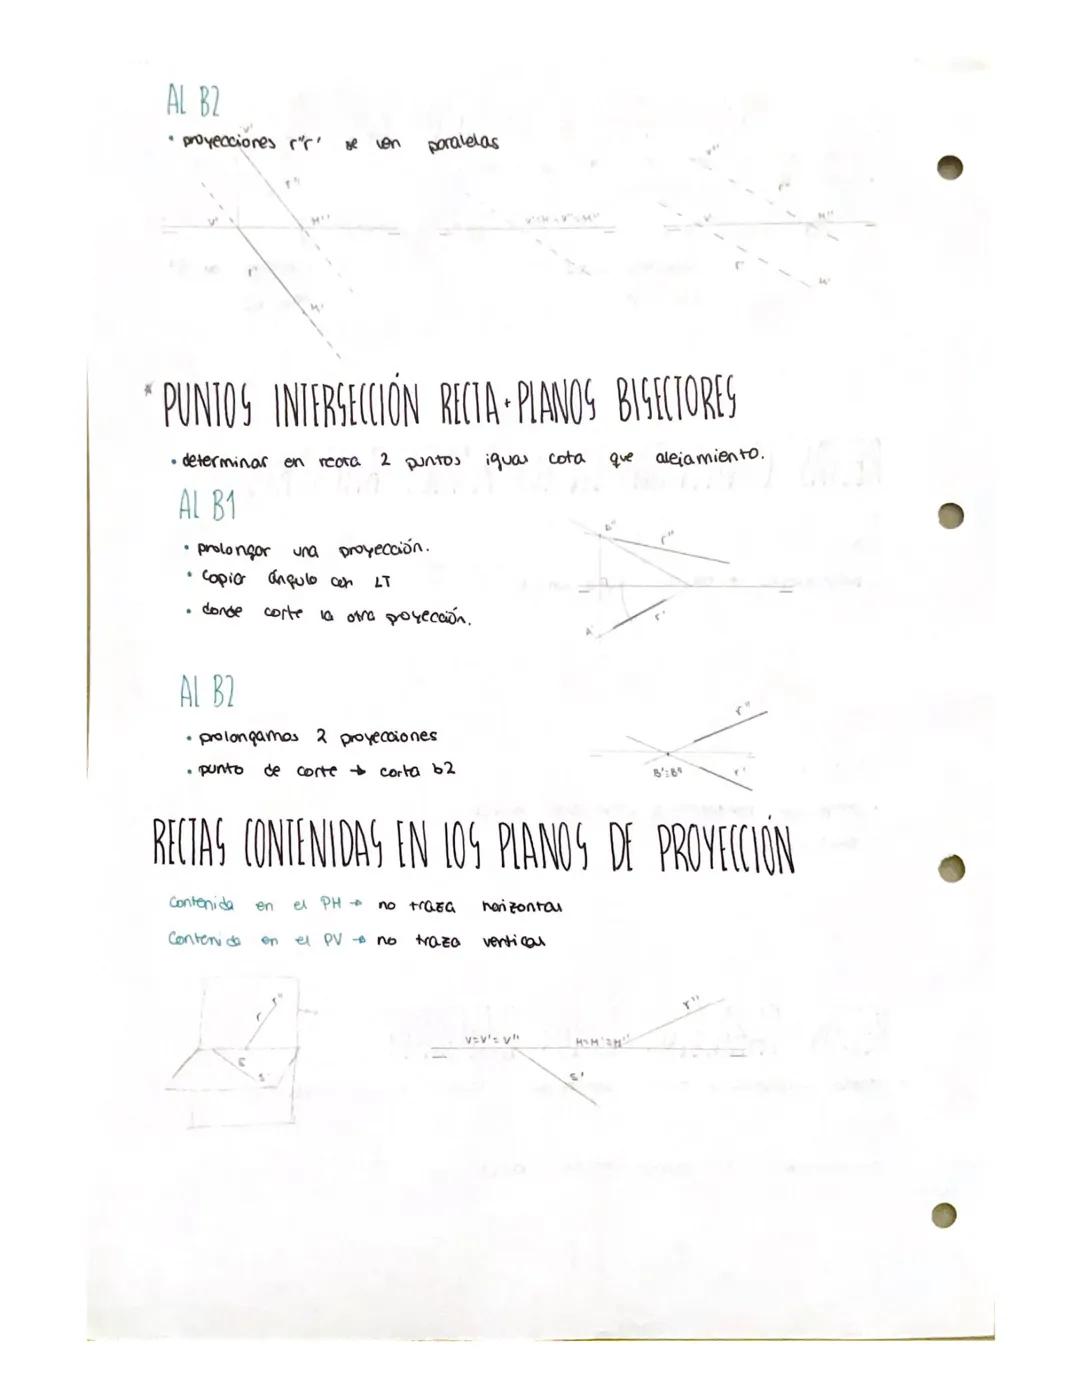 AL B2
• proyecciones r''r' se ven paralelas
V''
r''
V'
H''
r'
H'
V'≡H'≡V''≡H''
V''
r''
V'
H''
r'
H'
* PUNTOS INTERSECCIÓN RECTA + PLANOS BISECTORES
• determinar en recta 2 puntos igual cota que alejamiento.
AL B1
• prolongar una proyección.
• copiar ángulo con LT
• donde corte la otra proyección.
r''
A'
r'
AL B2
• prolongamos 2 proyecciones
• punto de corte → corta b2
r''
B'≡B''
r'
RECTAS CONTENIDAS EN LOS PLANOS DE PROYECCIÓN
Contenida en el PH → no traza horizontal
Contenida en el PV → no traza vertical
r''
r
s
s'
V≡V'≡V''
H≡H'≡H''
r''
s'